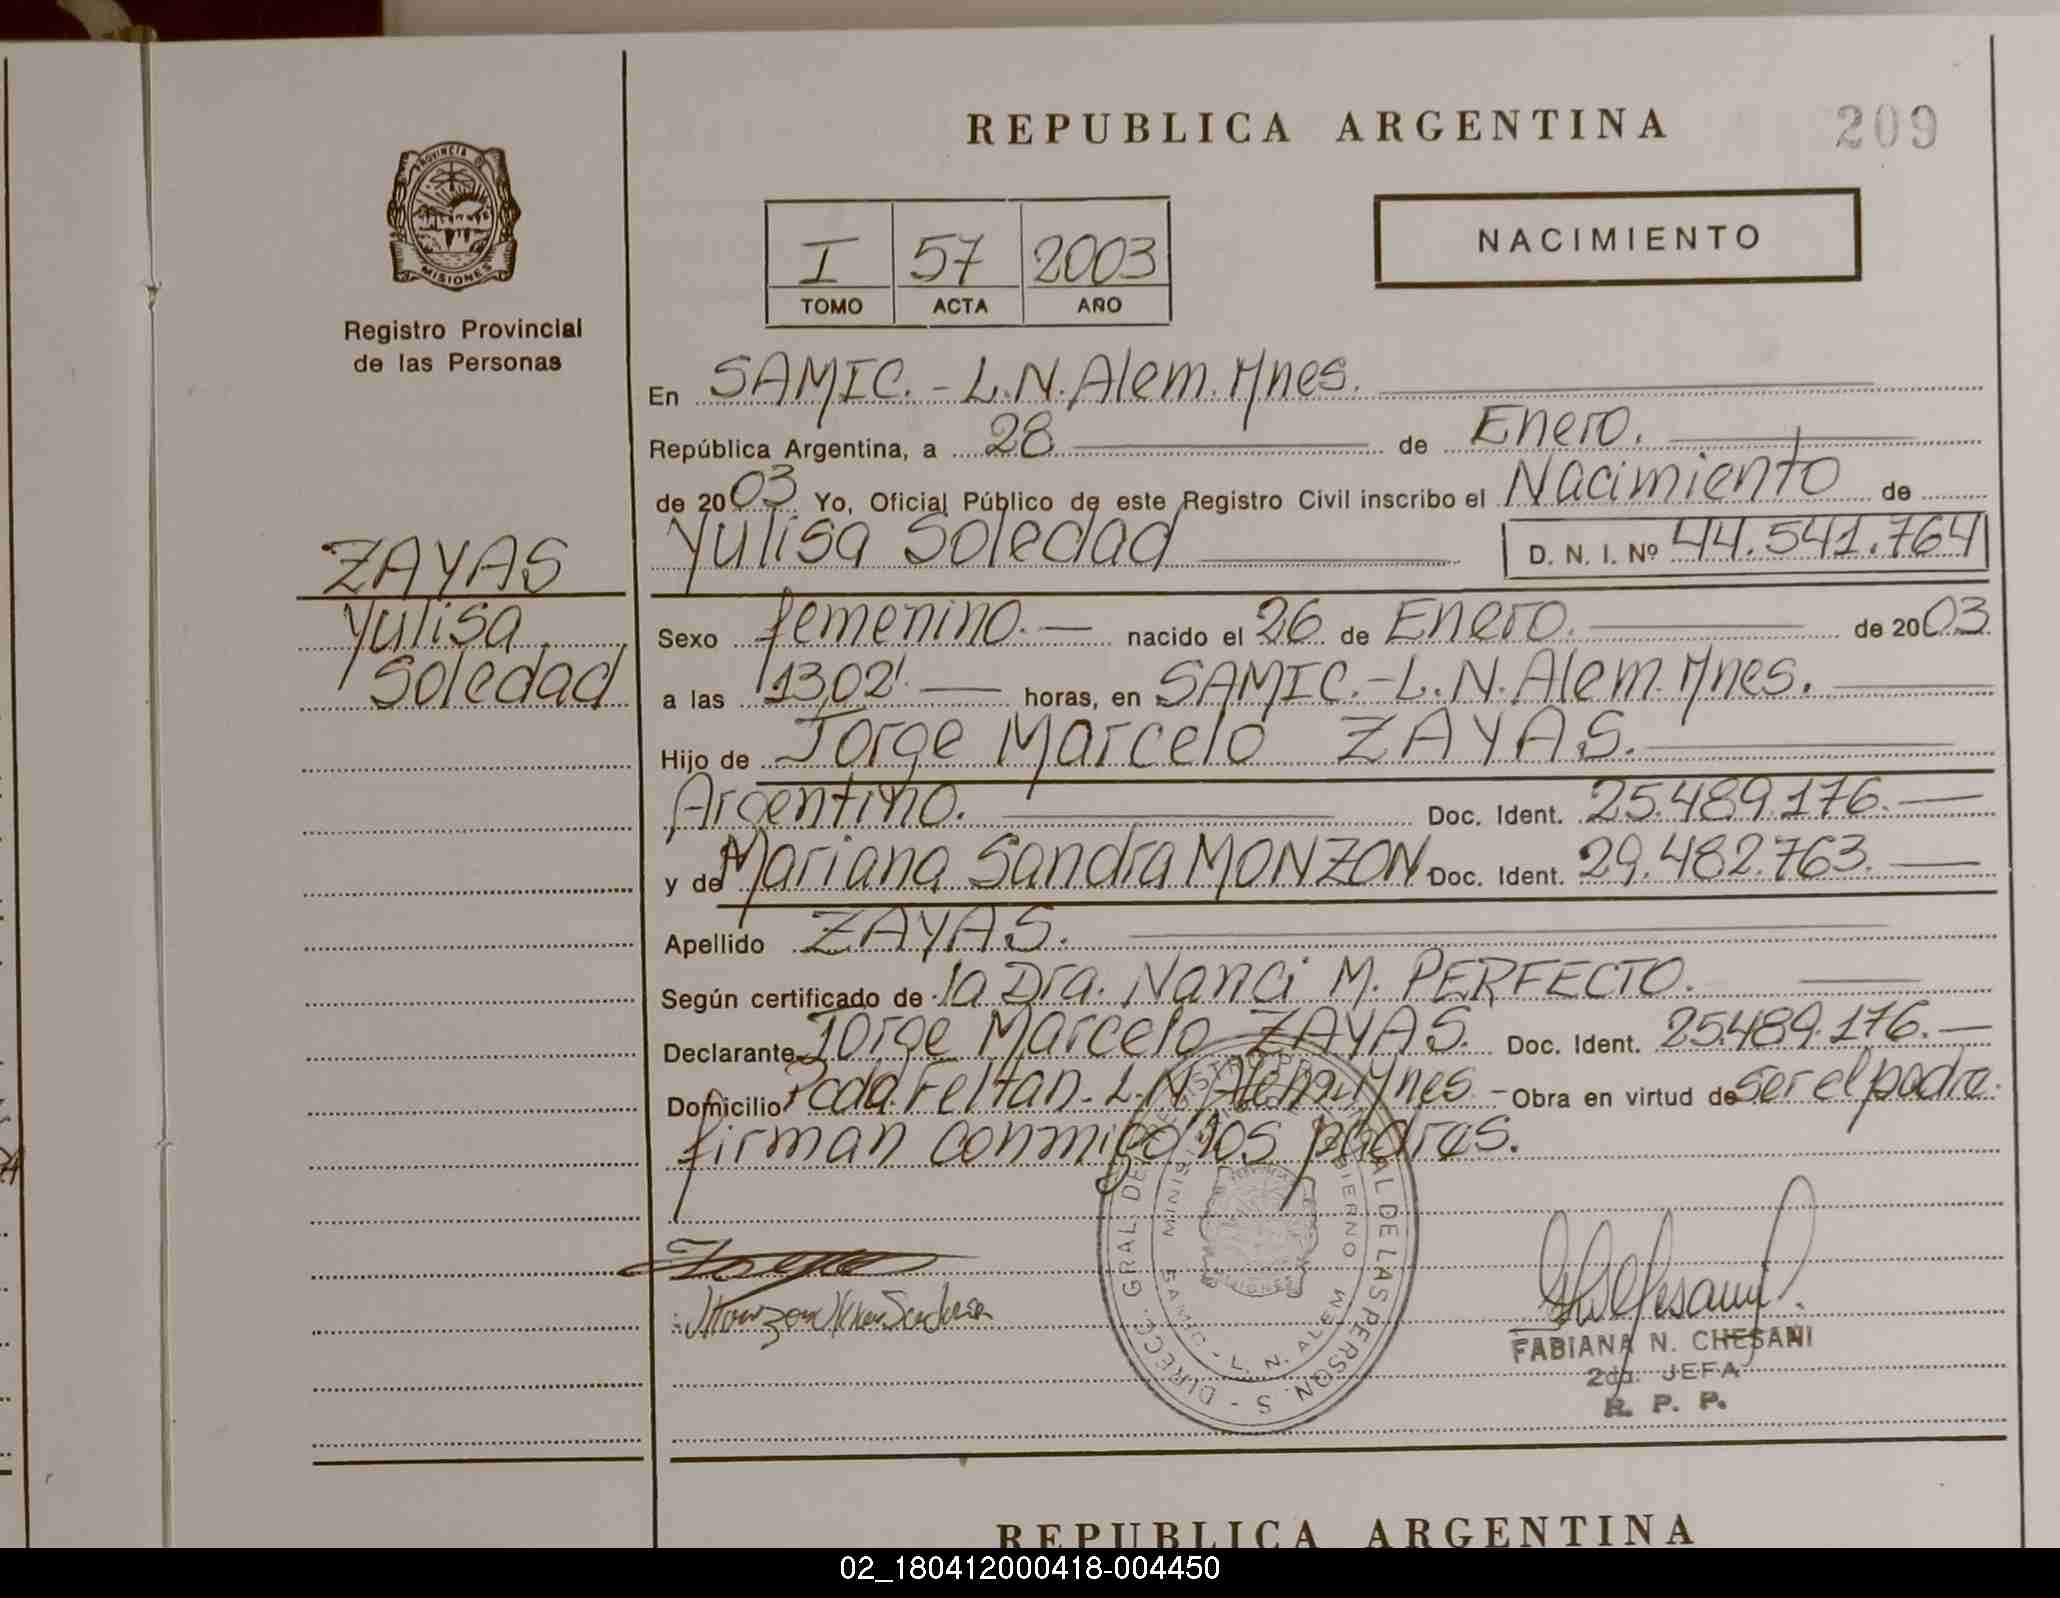 REPUBLICA ARGENTINA
209
PROVINCIA DE
MISIONES
Registro Provincial
de las Personas
I 57 2003
TOMO ACTA AÑO
NACIMIENTO
En SAMIC.-L.N.Alem.Mnes.
República Argentina, a 28 de Enero.
de 2003 Yo, Oficial Público de este Registro Civil inscribo el Nacimiento de
Yulisa Soledad D. N. I. Nº 44.541.764
ZAYAS
Yulisa
Soledad
Sexo femenino.- nacido el 26 de Enero. de 2003
a las 13,02'. horas, en SAMIC.-L.N.Alem.Mnes.
Hijo de Jorge Marcelo ZAYAS.
Argentino. Doc. Ident. 25.489.176.
y de Mariana Sandra MONZON Doc. Ident. 29.482.763.
Apellido ZAYAS.
Según certificado de la Dra. Nanci M. PERFECTO.
Declarante Jorge Marcelo ZAYAS. Doc. Ident. 25.489.176.
Domicilio Pcda. Feltan. L.N. Alem. Mnes - Obra en virtud de ser el padre.
firman conmigo los padres.
FABIANA N. CHESANI
2da. JEFA
R. P. P.
REPUBLICA ARGENTINA
02_180412000418-004450